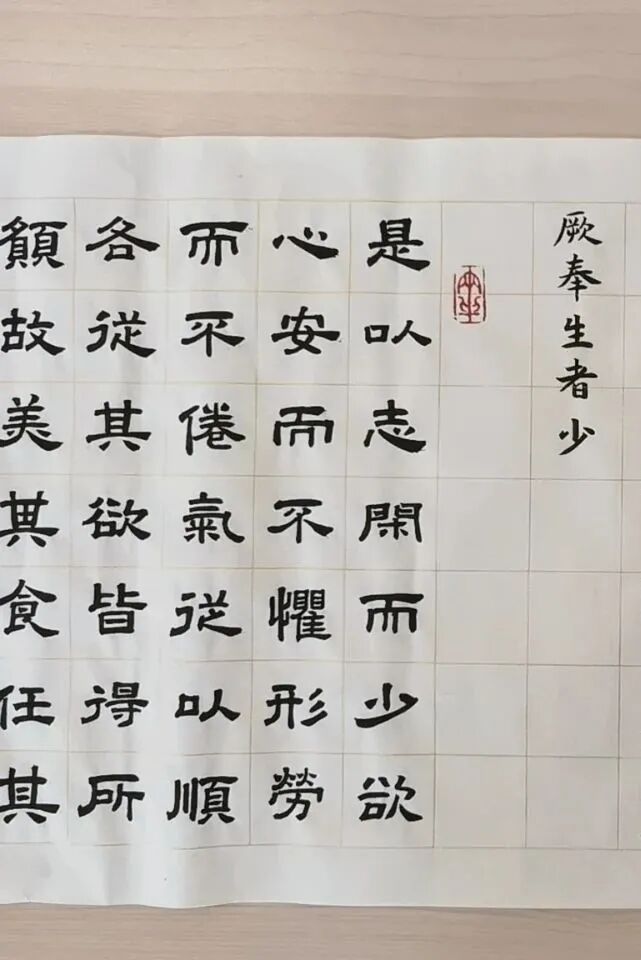 厥奉生者少
是以志閑而少欲
心安而不懼形勞
而不倦氣從以順
各從其欲皆得所
願故美其食任其